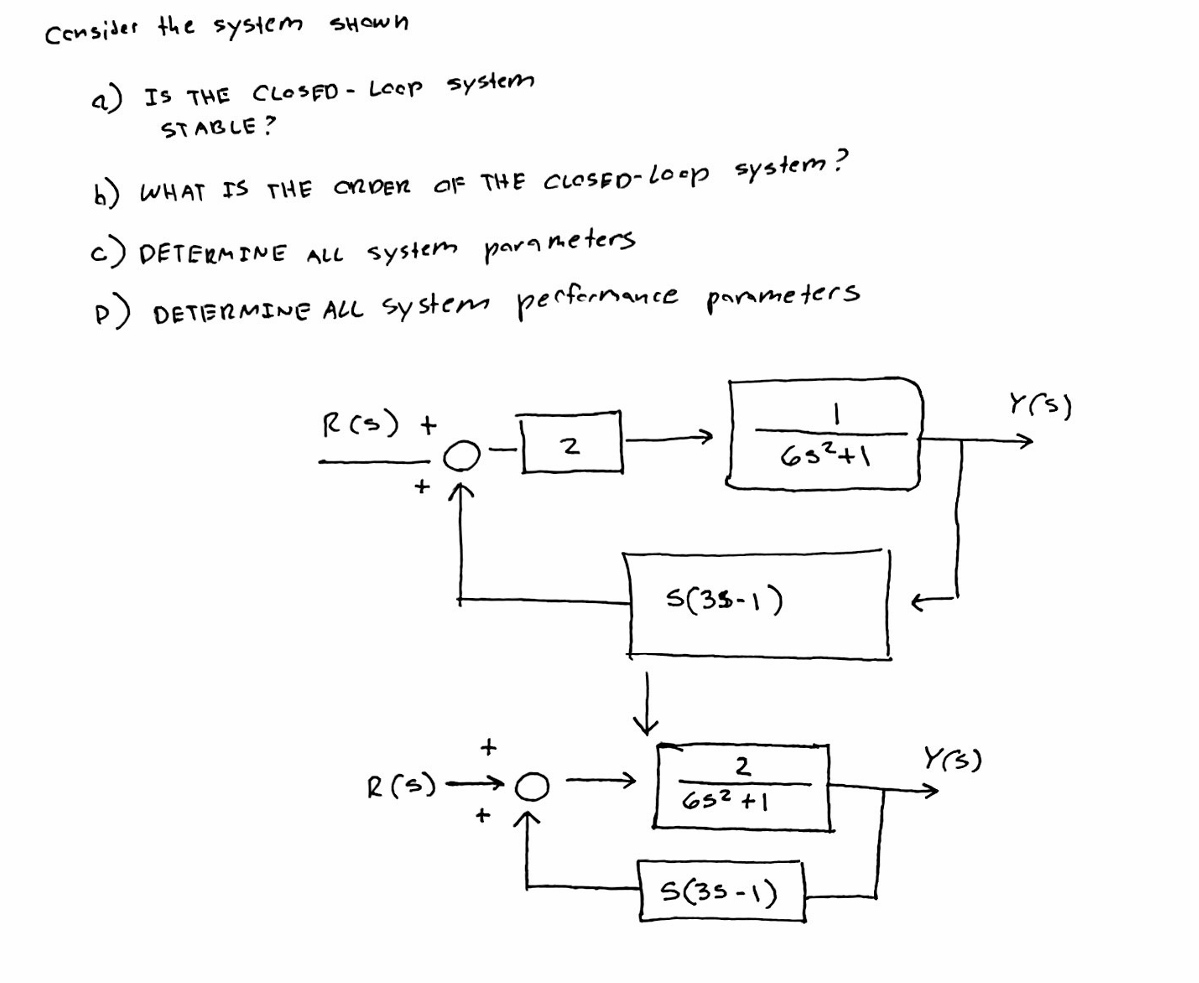 Consider the system SHOWN
a) IS THE CLOSED-LOOP system
STABLE?
b) WHAT IS THE ORDER OF THE CLOSED-LOOP system?
c) DETERMINE ALL system parameters
D) DETERMINE ALL system performance parameters
R(s) +
+
2
1
6s²+1
Y(s)
S(3S-1)
+
R(s)
+
2
6s²+1
Y(s)
S(3s-1)